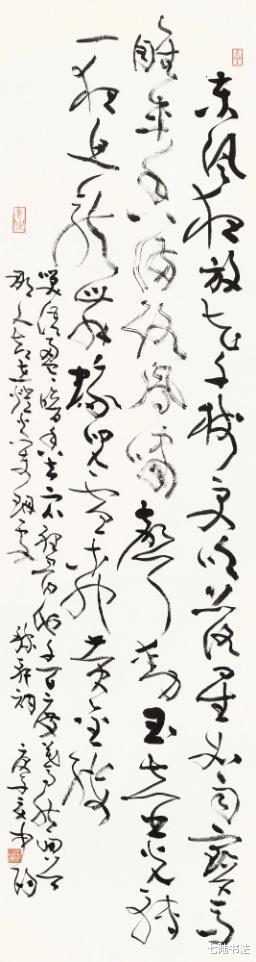 东风夜放花千树更吹落星如雨宝马
雕车香满路凤箫声动玉壶光转
一夜鱼龙舞蛾儿雪柳黄金缕
笑语盈盈暗香去众里寻他千百度蓦然回首
那人却在灯火阑珊处 稼轩词 庚子夏中
七陆书法